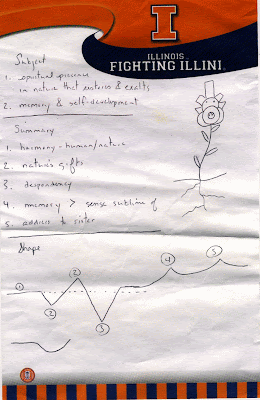 I
ILLINOIS
FIGHTING ILLINI
Subject
1. spiritual presence
in nature that restores & exalts
2. memory & self-development
Summary
1. harmony - human/nature
2. nature's gifts
3. despondency
4. memory > sense sublime of
5. address to sister
Shape
1
2
2
3
4
5